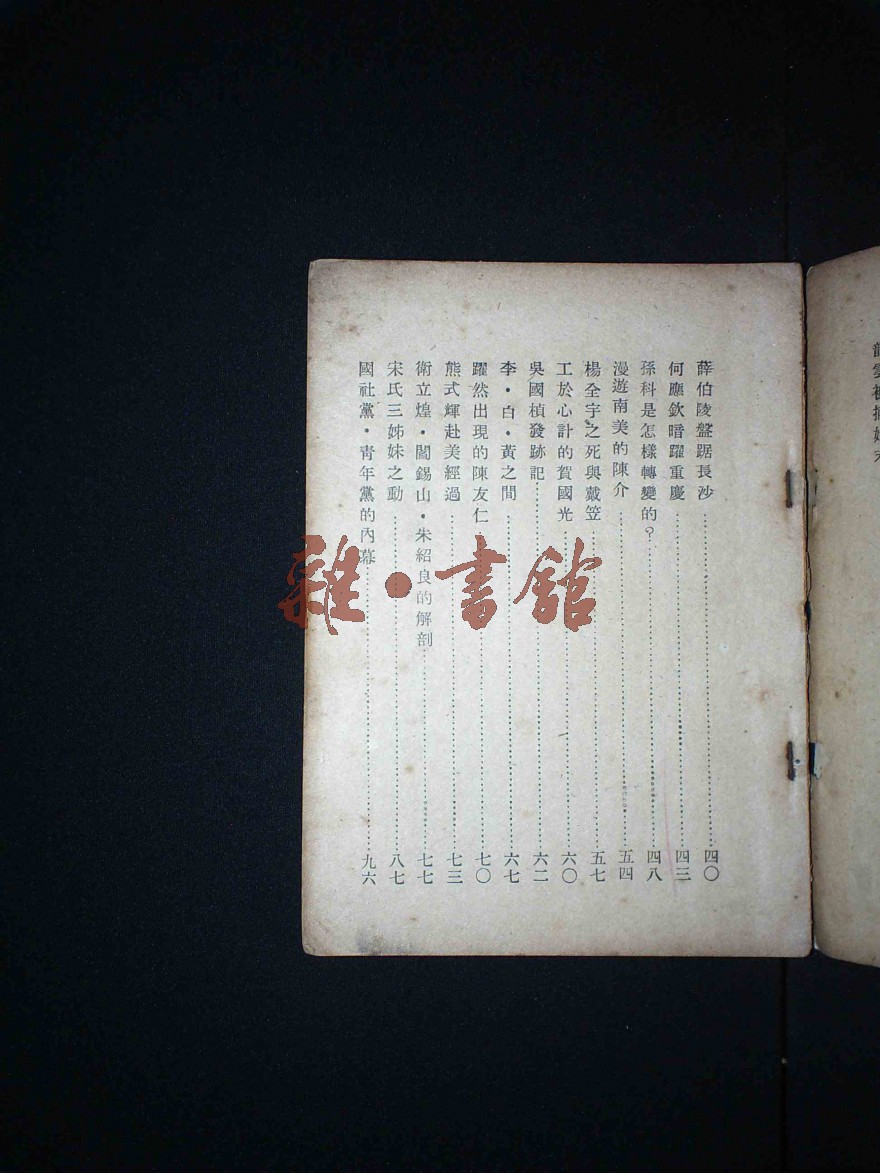 龍雲被捕始末
薛伯陵盤踞長沙……四〇
何應欽暗躍重慶……四三
孫科是怎樣轉變的？……四八
漫遊南美的陳介……五四
楊全宇之死與戴笠……五七
工於心計的賀國光……六〇
吳國楨發跡記……六二
李・白・黃之間……六七
躍然出現的陳友仁……七〇
熊式輝赴美經過……七三
衛立煌・閻錫山・朱紹良的解剖……七七
宋氏三姊妹之動……八七
國社黨・青年黨的內幕……九六
雜・書館